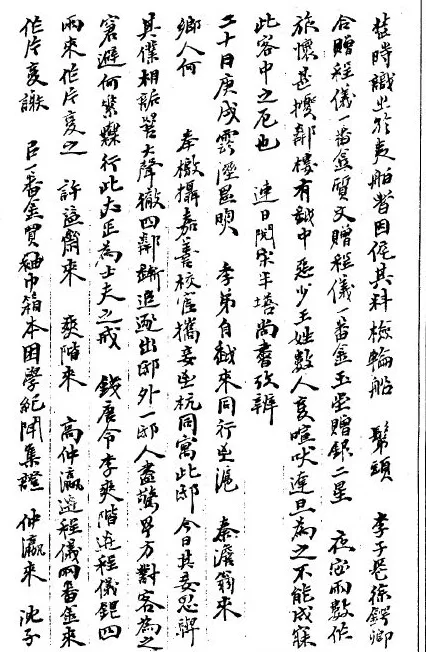 時識之於夷船嘗因倩其料檢輪船 鬀頭 李子長徐鍔卿
合贈程儀一番金質文贈程儀一番金玉贈銀二星 夜密雨數作
旅懷甚擾鄰樓有越中惡少王姓數人喧吠達旦為之不能成寐
此客中之厄也 連日閱宋半塘尚書攷辨
二十日庚戌雲溼 季弟自越來同行至滬 秦澹翁來
鄉人何 奉檄攝嘉善校官攜妾至杭同寓此邸 今日其妾忽與
其僕相詬詈大聲徹四鄰追逐出邸外一邸人盡驚方對客為之
窘避何行此正為士夫之戒 錢唐令李爽階送程儀銀四
兩來作片受之 許益齋來 爽階來 高仲瀛送程儀兩番金來
作片受謝 以一番金買袖巾箱本困學紀聞集證 仲瀛來 沈子